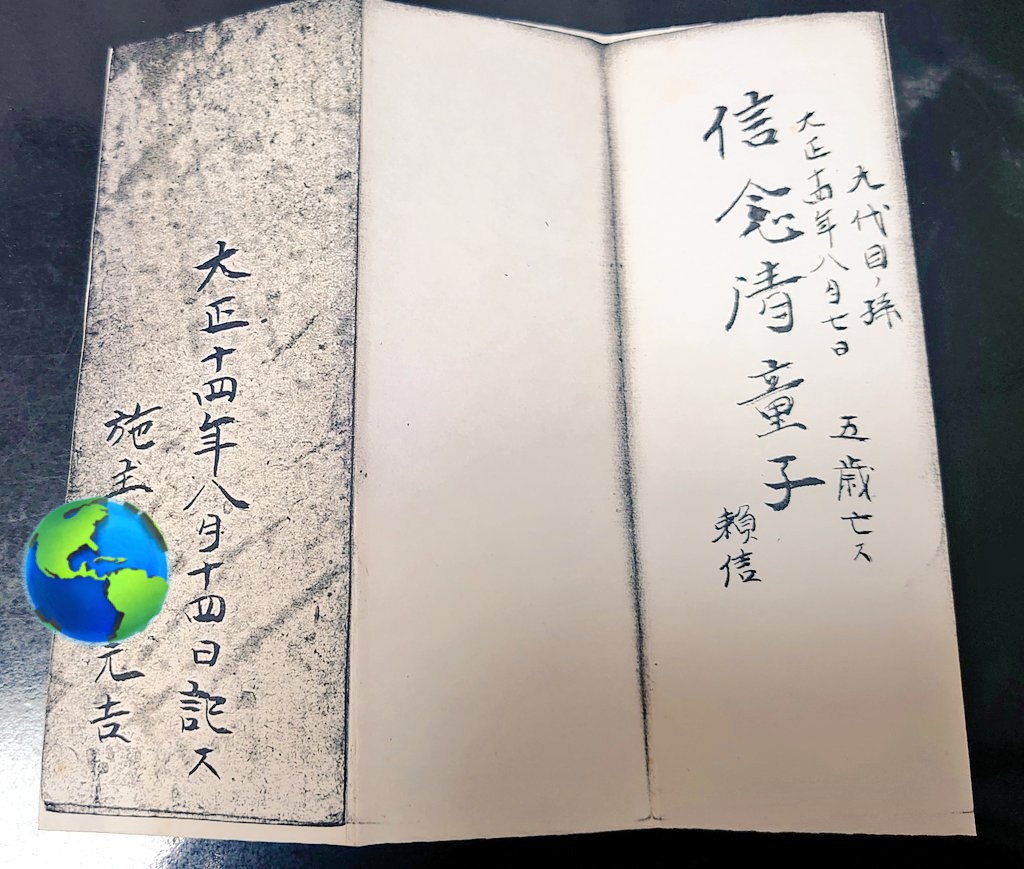 九代目ノ孫
大正十四年八月七日 五歳亡ス
信念清童子
頼信
大正十四年八月十四日記ス
施主 元吉